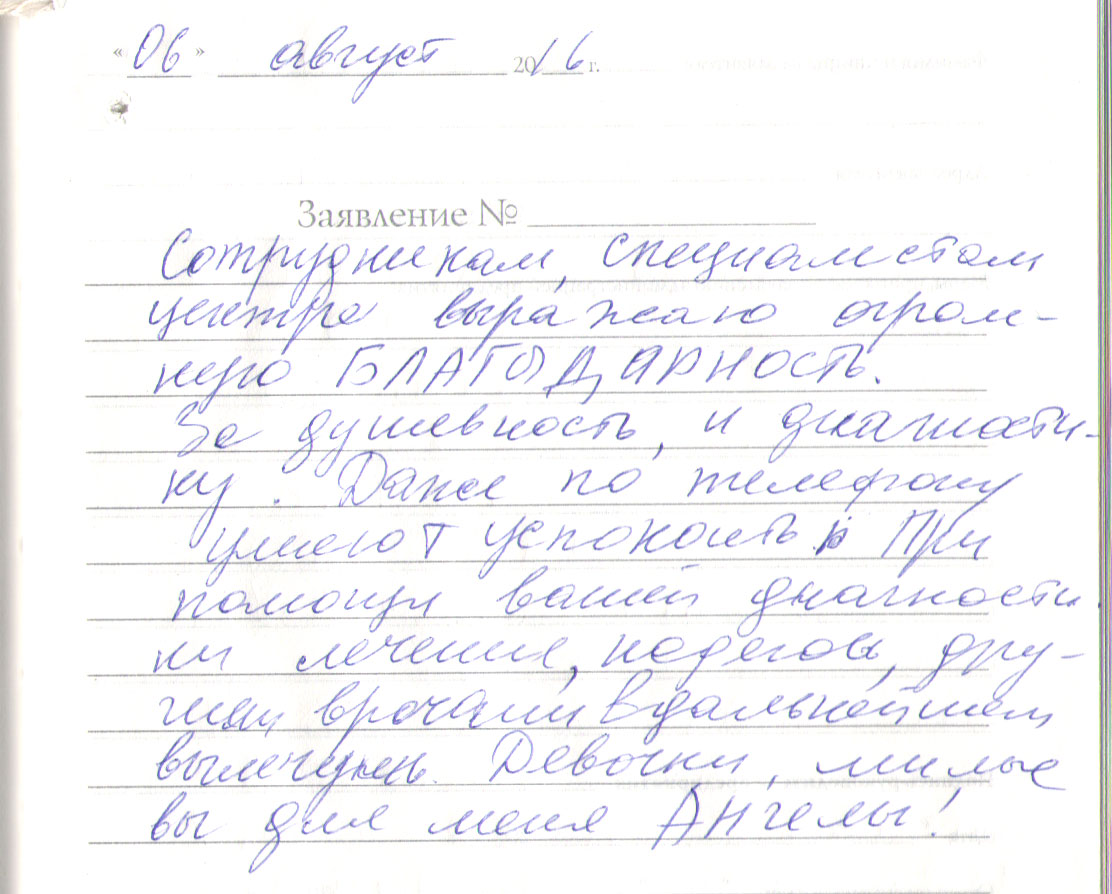 «06» август 2016 г.
Заявление №
Сотрудникам, специалистам
центра выражаю огром-
ную БЛАГОДАРНОСТЬ.
За душевность, и диагности-
ку. Даже по телефону
умеют успокоить. При
помощи вашей диагности
ки лечения, надеюсь, дру-
гими врачами в дальнейшем
вылечусь. Девочки, милые
вы для меня Ангелы!